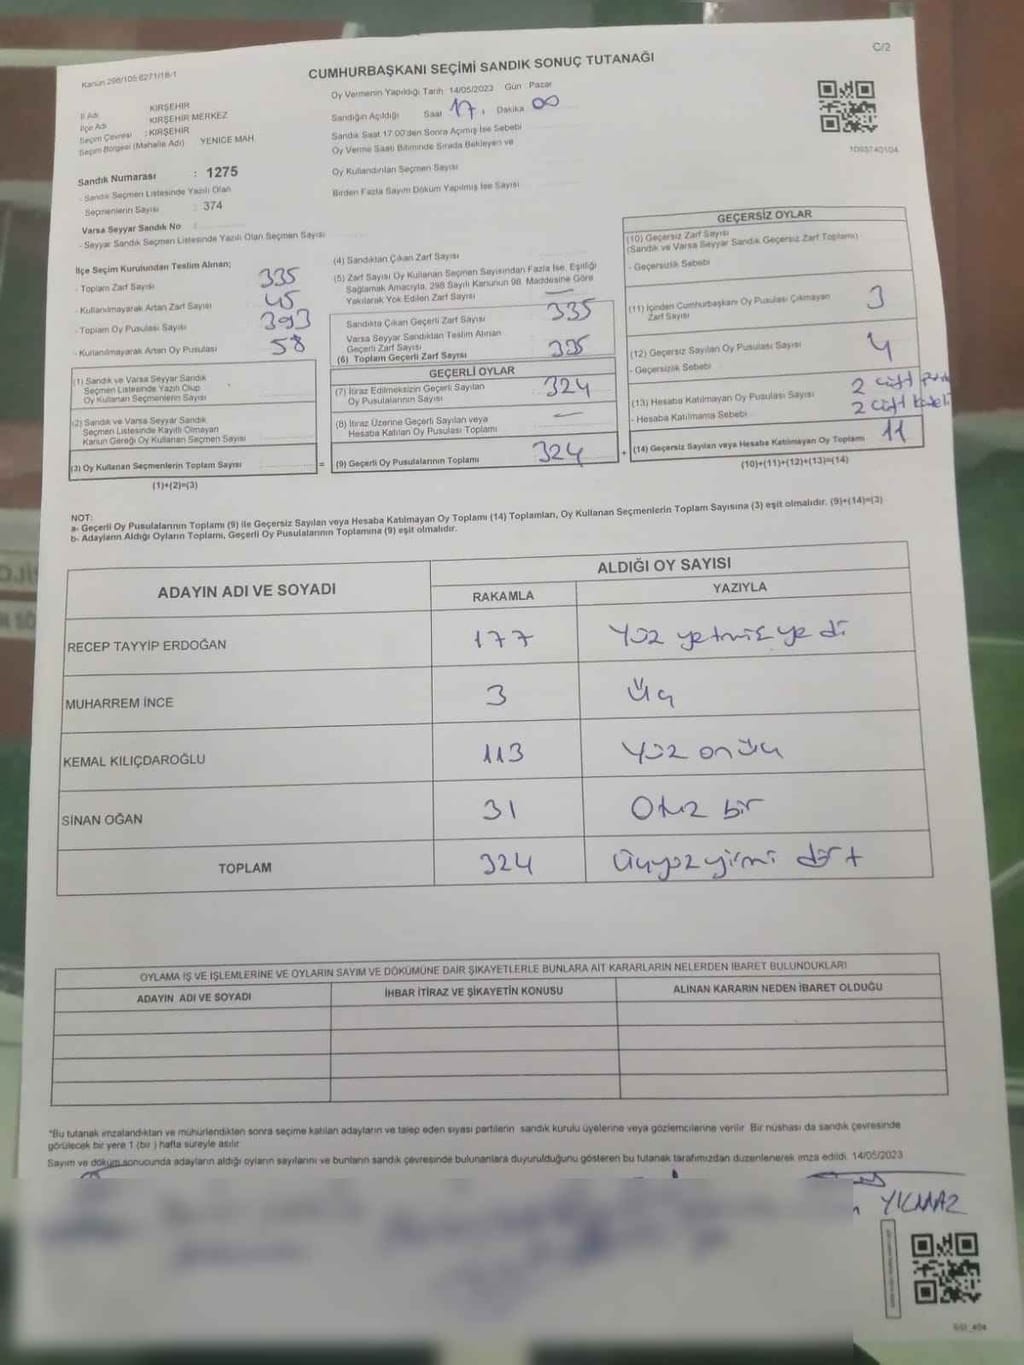 C/2
Kanun 298/105:6271/18/1
CUMHURBAŞKANI SEÇİMİ SANDIK SONUÇ TUTANAĞI
İl Adı KIRŞEHİR
İlçe Adı KIRŞEHİR MERKEZ
Seçim Çevresi : KIRŞEHİR
Seçim Bölgesi (Mahalle Adı) YENİCE MAH
Sandık Numarası : 1275
- Sandık Seçmen Listesinde Yazılı Olan
Seçmenlerin Sayısı : 374
Varsa Seyyar Sandık No
- Seyyar Sandık Seçmen Listesinde Yazılı Olan Seçmen Sayısı
Oy Vermenin Yapıldığı Tarih 14/05/2023 Gün : Pazar
Sandığın Açıldığı Saat 17, Dakika 00
Sandık Saat 17.00'den Sonra Açılmış İse Sebebi
Oy Verme Saati Bitiminde Sırada Bekleyen ve
Oy Kullandırılan Seçmen Sayısı
Birden Fazla Sayım Döküm Yapılmış İse Sayısı
1093740104
İlçe Seçim Kurulundan Teslim Alınan;
- Toplam Zarf Sayısı 335
- Kullanılmayarak Artan Zarf Sayısı 45
- Toplam Oy Pusulası Sayısı 393
- Kullanılmayarak Artan Oy Pusulası 58
(1) Sandık ve Varsa Seyyar Sandık
Seçmen Listesinde Yazılı Olup
Oy Kullanan Seçmenlerin Sayısı
(2) Sandık ve Varsa Seyyar Sandık
Seçmen Listesinde Kayıtlı Olmayan
Kanun Gereği Oy Kullanan Seçmen Sayısı
(3) Oy Kullanan Seçmenlerin Toplam Sayısı
(1)+(2)=(3)
(4) Sandıktan Çıkan Zarf Sayısı
(5) Zarf Sayısı Oy Kullanan Seçmen Sayısından Fazla İse, Eşitliği
Sağlamak Amacıyla, 298 Sayılı Kanunun 98. Maddesine Göre
Yakılarak Yok Edilen Zarf Sayısı —
Sandıkta Çıkan Geçerli Zarf Sayısı 335
Varsa Seyyar Sandıktan Teslim Alınan
Geçerli Zarf Sayısı
(6) Toplam Geçerli Zarf Sayısı 335
GEÇERLİ OYLAR
(7) İtiraz Edilmeksizin Geçerli Sayılan
Oy Pusulalarının Sayısı 324
(8) İtiraz Üzerine Geçerli Sayılan veya
Hesaba Katılan Oy Pusulası Toplamı —
= (9) Geçerli Oy Pusulalarının Toplamı 324
GEÇERSİZ OYLAR
(10) Geçersiz Zarf Sayısı
(Sandık ve Varsa Seyyar Sandık Geçersiz Zarf Toplamı)
- Geçersizlik Sebebi
(11) İçinden Cumhurbaşkanı Oy Pusulası Çıkmayan
Zarf Sayısı 3
(12) Geçersiz Sayılan Oy Pusulası Sayısı 4
- Geçersizlik Sebebi
(13) Hesaba Katılmayan Oy Pusulası Sayısı 2 çift
- Hesaba Katılmama Sebebi 2 çift
+ (14) Geçersiz Sayılan veya Hesaba Katılmayan Oy Toplamı 11
(10)+(11)+(12)+(13)=(14)
NOT:
a- Geçerli Oy Pusulalarının Toplamı (9) ile Geçersiz Sayılan veya Hesaba Katılmayan Oy Toplamı (14) Toplamları, Oy Kullanan Seçmenlerin Toplam Sayısına (3) eşit olmalıdır. (9)+(14)=(3)
b- Adayların Aldığı Oyların Toplamı, Geçerli Oy Pusulalarının Toplamına (9) eşit olmalıdır.
ADAYIN ADI VE SOYADI ALDIĞI OY SAYISI
RAKAMLA YAZIYLA
RECEP TAYYİP ERDOĞAN 177 Yüz yetmiş yedi
MUHARREM İNCE 3 Üç
KEMAL KILIÇDAROĞLU 113 Yüz onüç
SİNAN OĞAN 31 Otuz bir
TOPLAM 324 Üçyüz yirmi dört
OYLAMA İŞ VE İŞLEMLERİNE VE OYLARIN SAYIM VE DÖKÜMÜNE DAİR ŞİKAYETLERLE BUNLARA AİT KARARLARIN NELERDEN İBARET BULUNDUKLARI
ADAYIN ADI VE SOYADI İHBAR İTİRAZ VE ŞİKAYETİN KONUSU ALINAN KARARIN NEDEN İBARET OLDUĞU
*Bu tutanak imzalandıktan ve mühürlendikten sonra seçime katılan adayların ve talep eden siyasi partilerin sandık kurulu üyelerine veya gözlemcilerine verilir. Bir nüshası da sandık çevresinde
görülecek bir yere 1 (bir ) hafta süreyle asılır
Sayım ve döküm sonucunda adayların aldığı oyların sayılarını ve bunların sandık çevresinde bulunanlara duyurulduğunu gösteren bu tutanak tarafımızdan düzenlenerek imza edildi. 14/05/2023
YILMAZ